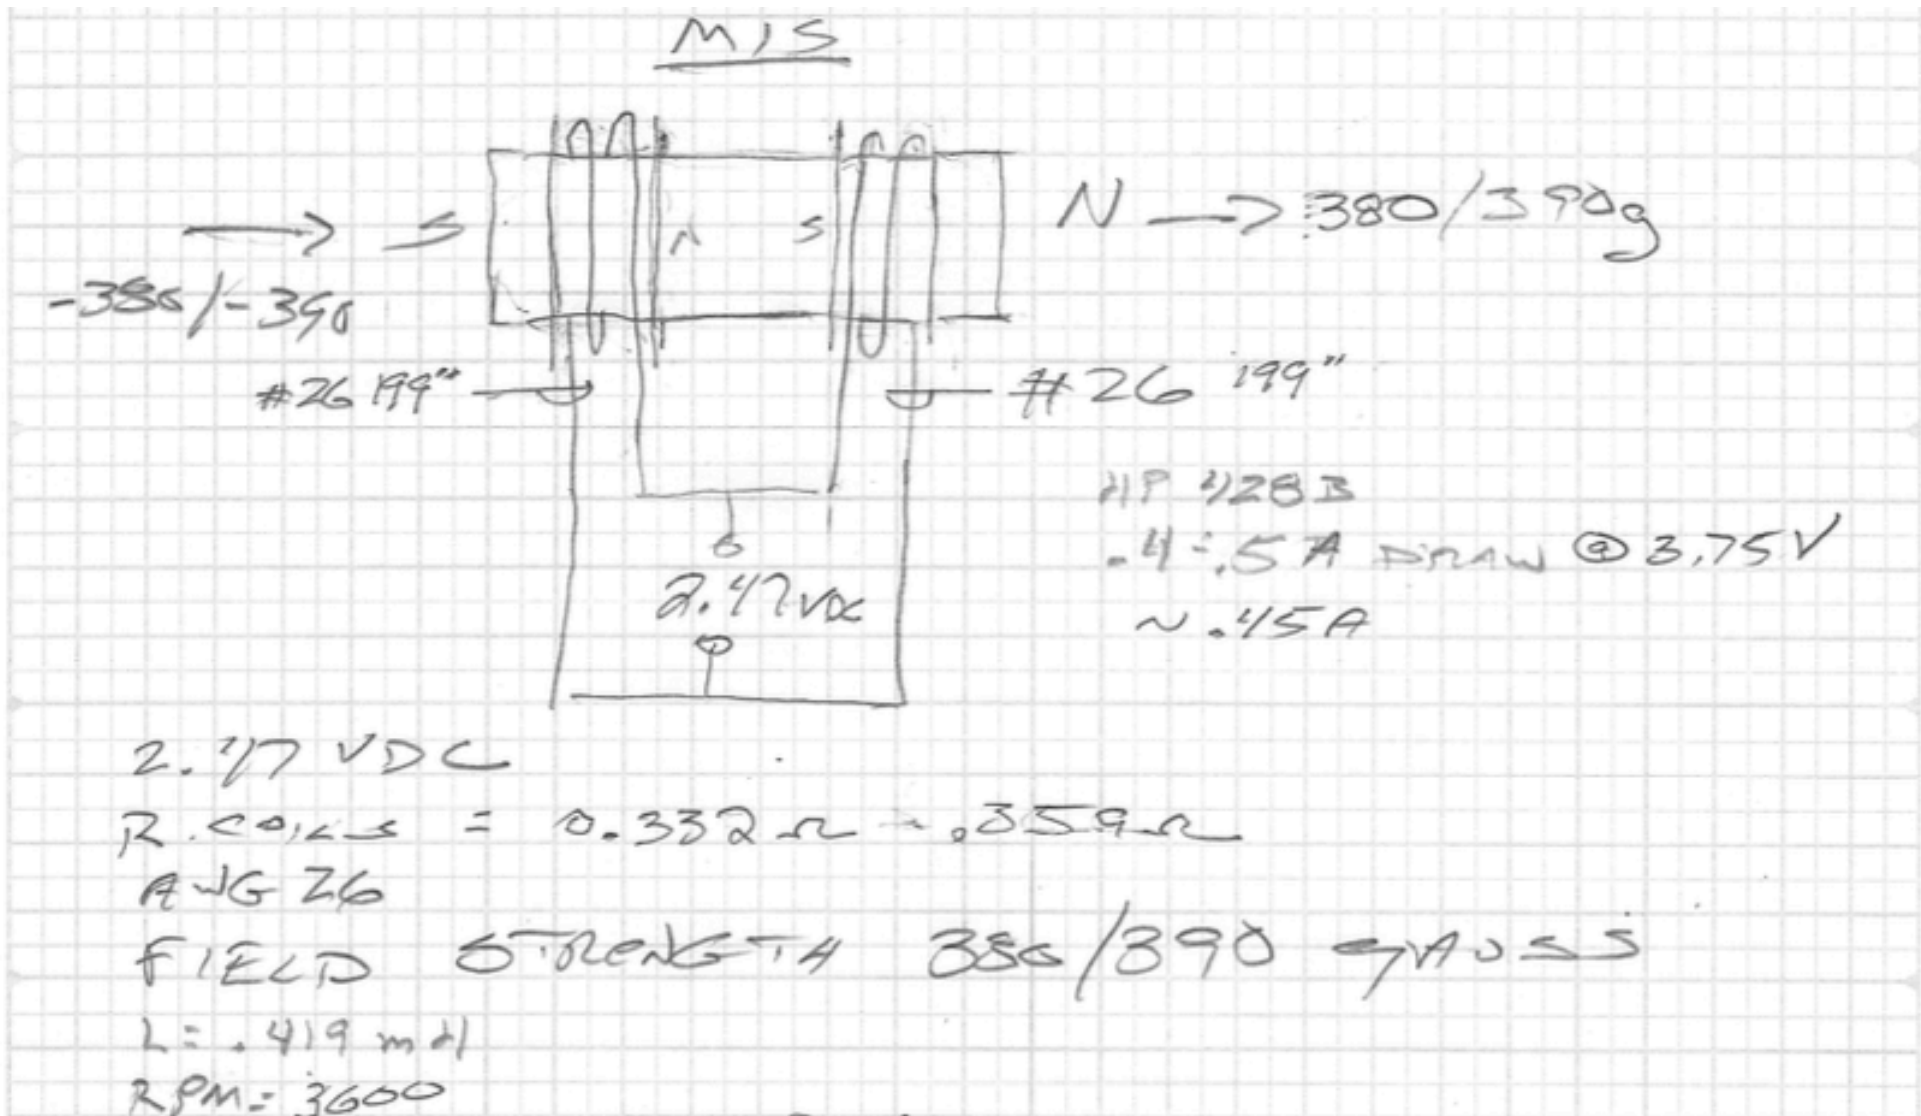 M15
S N S N → 380/390g
-380/-390
#26 199" #26 199"
HP 428B
.4-.5A DRAW @ 3.75V
~ .45A
2.47 VDC
2.47 VDC
R.COILS = 0.332Ω - .359Ω
AWG 26
FIELD STRENGTH 380/390 GAUSS
L= .419 mH
RPM= 3600